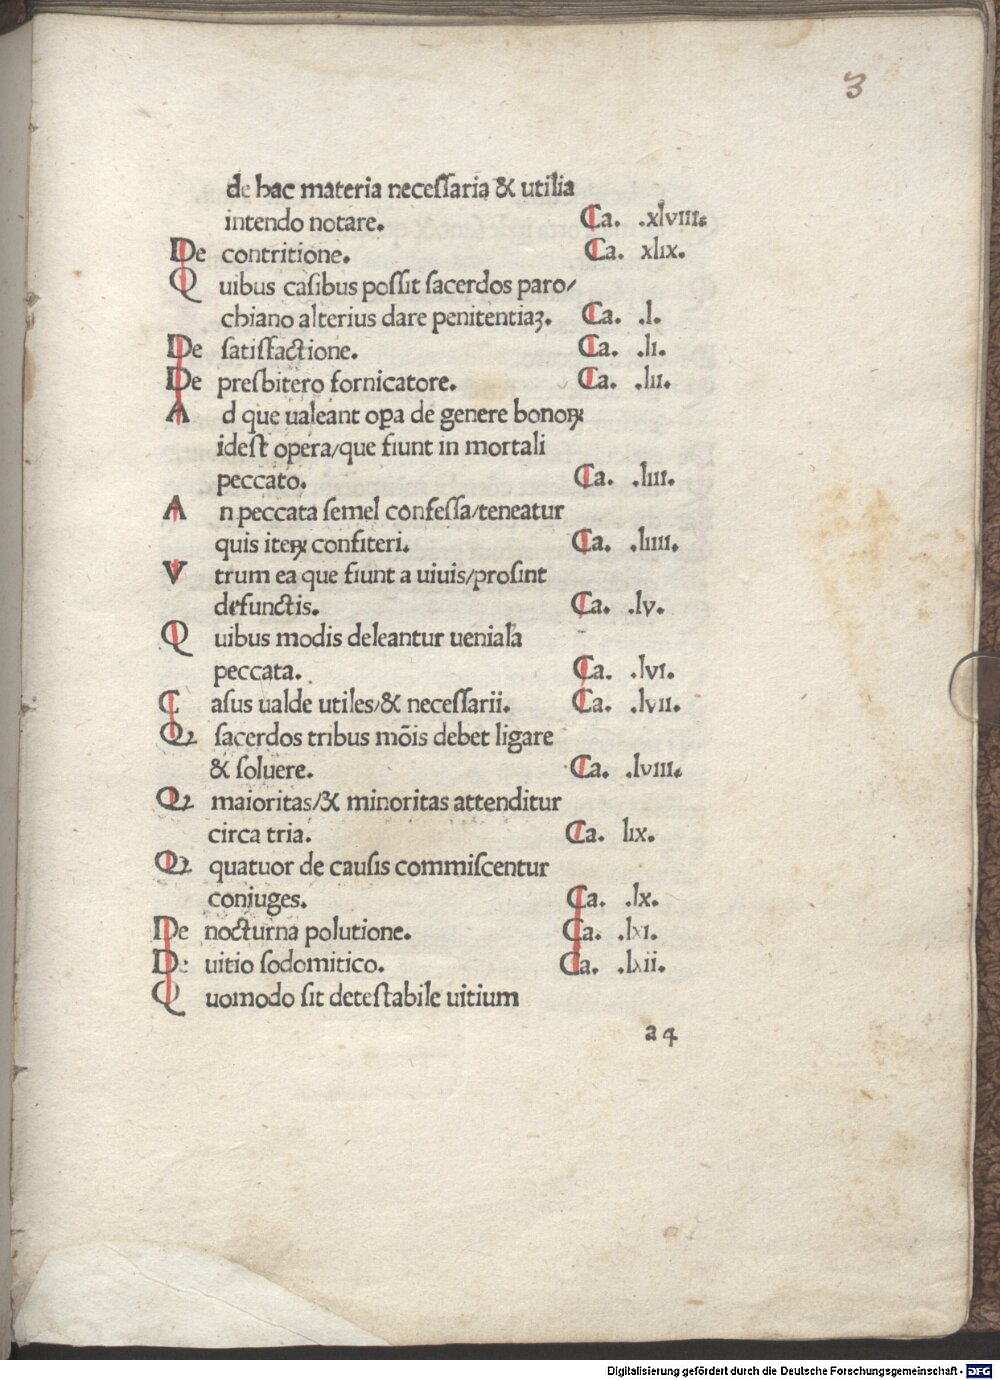 3
de hac materia necessaria & utilia
intendo notare. Ca. .xlviii.
De contritione. Ca. xlix.
Quibus casibus possit sacerdos paro/
chiano alterius dare penitentiaꝫ. Ca. .l.
De satisfactione. Ca. .li.
De presbitero fornicatore. Ca. .lii.
Ad que ualeant oꝑa de genere bonoꝝ
idest opera/que fiunt in mortali
peccato. Ca. .liii.
An peccata semel confessa/teneatur
quis iteꝝ confiteri. Ca. .liiii.
Vtrum ea que fiunt a uiuis/prosint
defunctis. Ca. .lv.
Quibus modis deleantur uenialia
peccata. Ca. .lvi.
Casus ualde utiles/& necessarii. Ca. .lvii.
Qꝛ sacerdos tribus mõis debet ligare
& soluere. Ca. .lviii.
Qꝛ maioritas/& minoritas attenditur
circa tria. Ca. lix.
Qꝛ quatuor de causis commiscentur
coniuges. Ca. .lx.
De nocturna polutione. Ca. .lxi.
De uitio sodomitico. Ca. .lxii.
Quomodo sit detestabile uitium
a 4
Digitalisierung gefördert durch die Deutsche Forschungsgemeinschaft - DFG